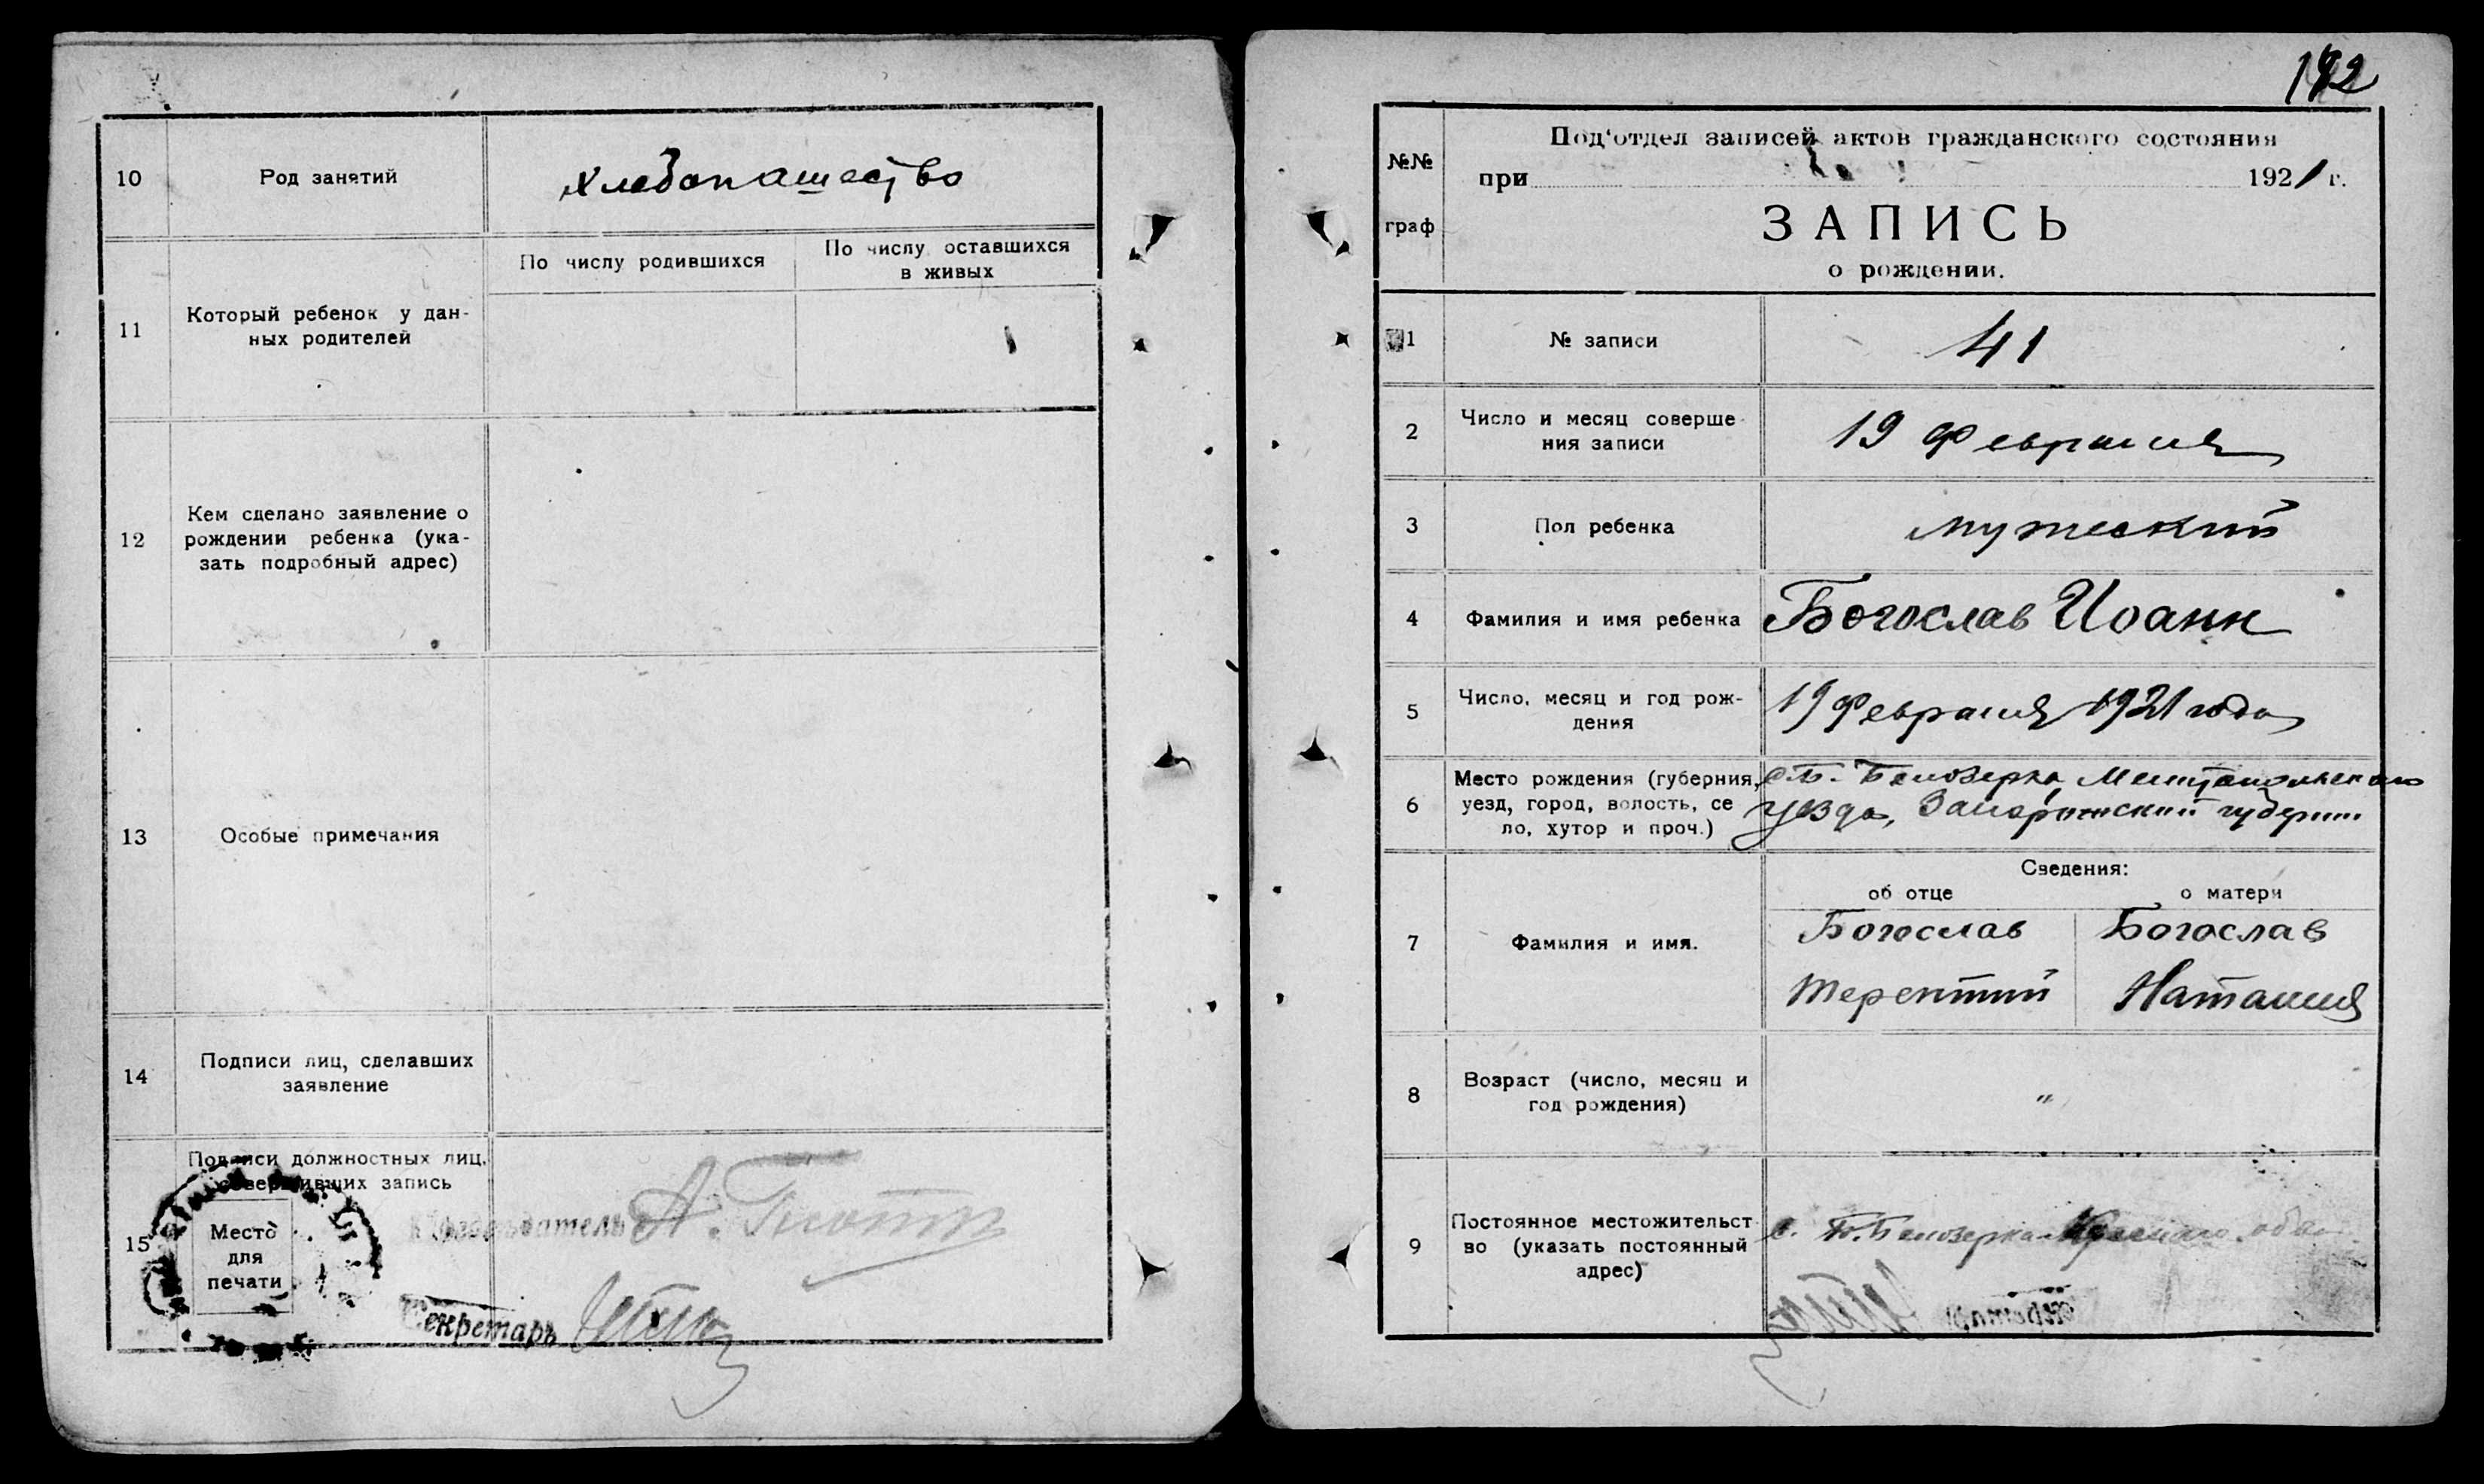 10
Род занятий
хлебопашество
11
Который ребенок у дан-
ных родителей
По числу родившихся
По числу оставшихся
в живых
12
Кем сделано заявление о
рождении ребенка (ука-
зать подробный адрес)
13
Особые примечания
14
Подписи лиц, сделавших
заявление
15
Подписи должностных лиц,
совершивших запись
Место
для
печати
Председатель А.
Секретарь
192
№№
граф
Под'отдел записей актов гражданского состояния
при 1921 г.
ЗАПИСЬ
о рождении.
1
№ записи
41
2
Число и месяц соверше
ния записи
19 Февраля
3
Пол ребенка
мужеский
4
Фамилия и имя ребенка
Богослав Иоанн
5
Число, месяц и год рож-
дения
19 Февраля 1921 года
6
Место рождения (губерния,
уезд, город, волость, се
ло, хутор и проч.)
с. Б. Белозерка, Мелитопольского
уезда, Запорожский губернии
Сведения:
об отце
о матери
7
Фамилия и имя.
Богослав
Терентий
Богослав
Наталия
8
Возраст (число, месяц и
год рождения)
"
9
Постоянное местожительст
во (указать постоянный
адрес)
с. Б. Белозерка